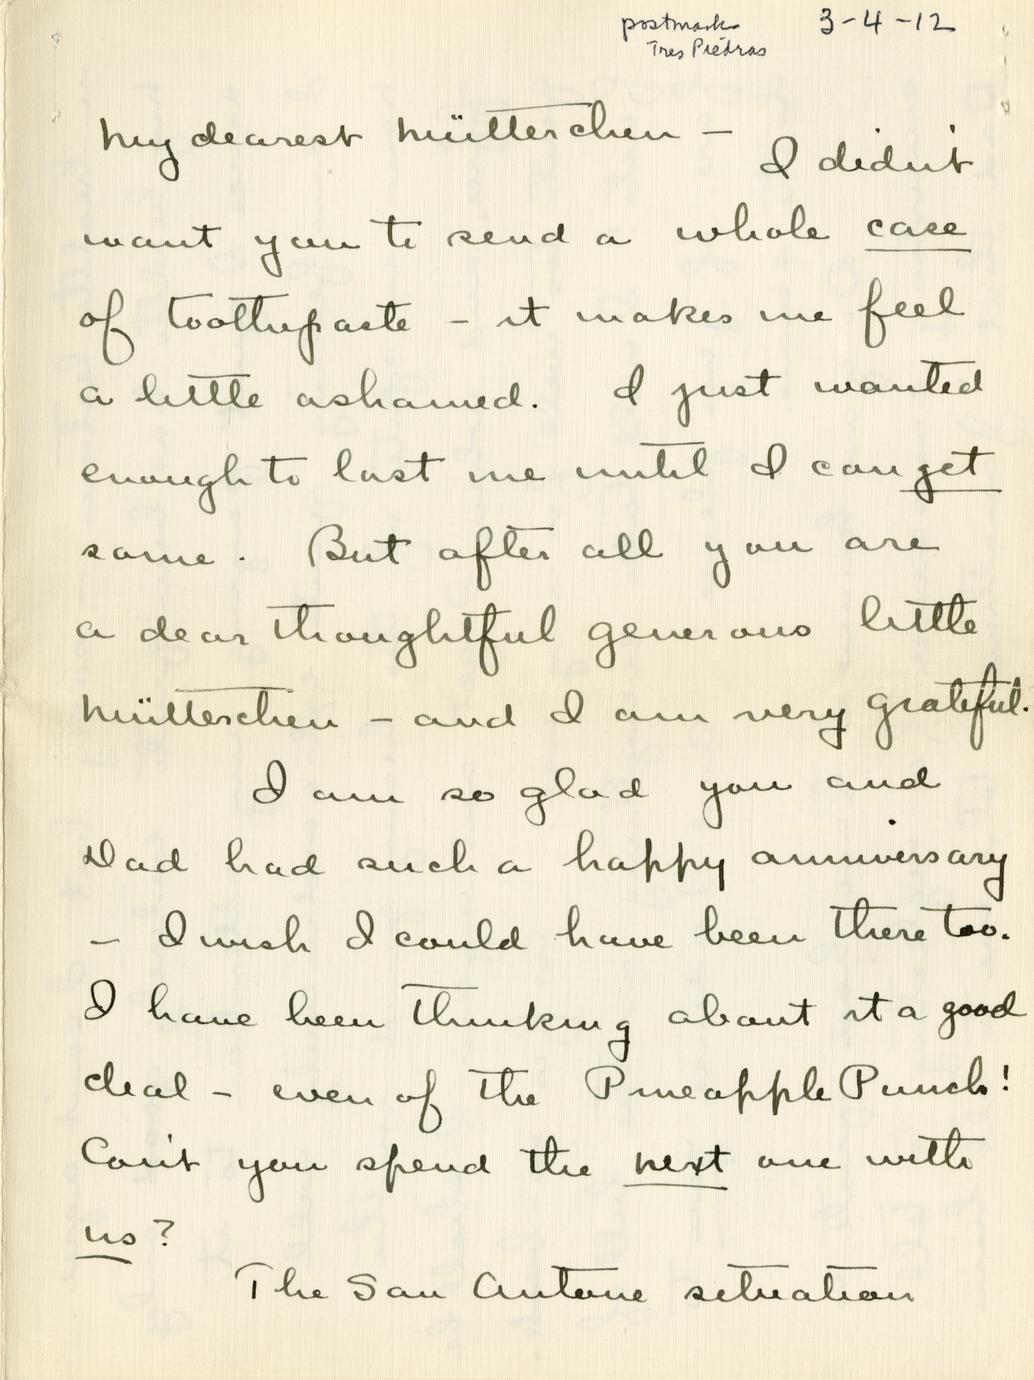 postmark 3-4-12
Tres Piedras
My dearest Mütterchen —
I didn't
want you to send a whole case
of toothpaste – it makes me feel
a little ashamed. I just wanted
enough to last me until I can get
some. But after all you are
a dear thoughtful generous little
Mütterchen – and I am very grateful.
I am so glad you and
Dad had such a happy anniversary
– I wish I could have been there too.
I have been thinking about it a good
deal – even of the Pineapple Punch!
Can't you spend the next one with
us?
The San Antone situation